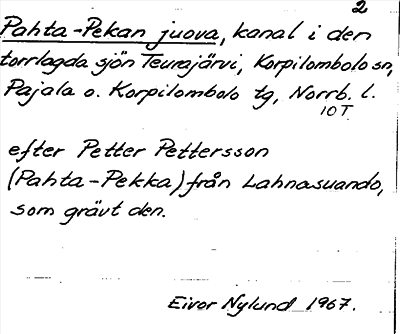 2
Pahta-Pekan juova, kanal i den
torrlagda sjön Teurajärvi, Korpilombolo sn,
Pajala o. Korpilombolo tg, Norrb. l.
10 T
efter Petter Pettersson
(Pahta-Pekka) från Lahnasuando,
som grävt den.
Eivor Nylund 1967.